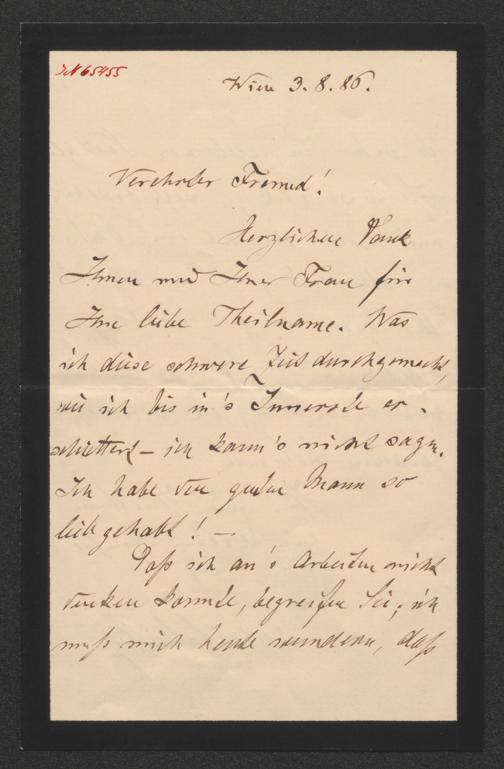 IN 65455
Wien 3. 8. 86.
Verehrter Freund!
Herzlichen Dank
Ihnen und Ihrer Frau für
Ihre liebe Theilname. Was
ich diese schwere Zeit durchgemacht,
wie ich bis in's Innerste er-
schüttert – ich kann's nicht sagen.
Ich habe den guten Mann so
lieb gehabt! –
Daß ich an's Arbeiten nicht
denken konnte, begreifen Sie; ich
muß mich heute wundern, daß